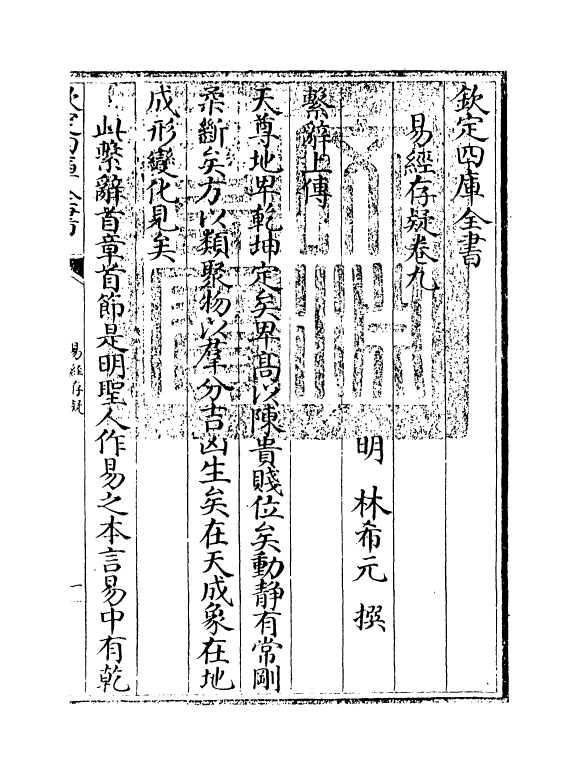 欽定四庫全書
易經存疑卷九
明　林希元　撰
繫辭上傳
天尊地卑乾坤定矣卑高以陳貴賤位矣動靜有常剛
柔斷矣方以類聚物以羣分吉凶生矣在天成象在地
成形變化見矣
此繫辭首章首節是明聖人作易之本言易中有乾
欽定四庫全書
易經存疑
一